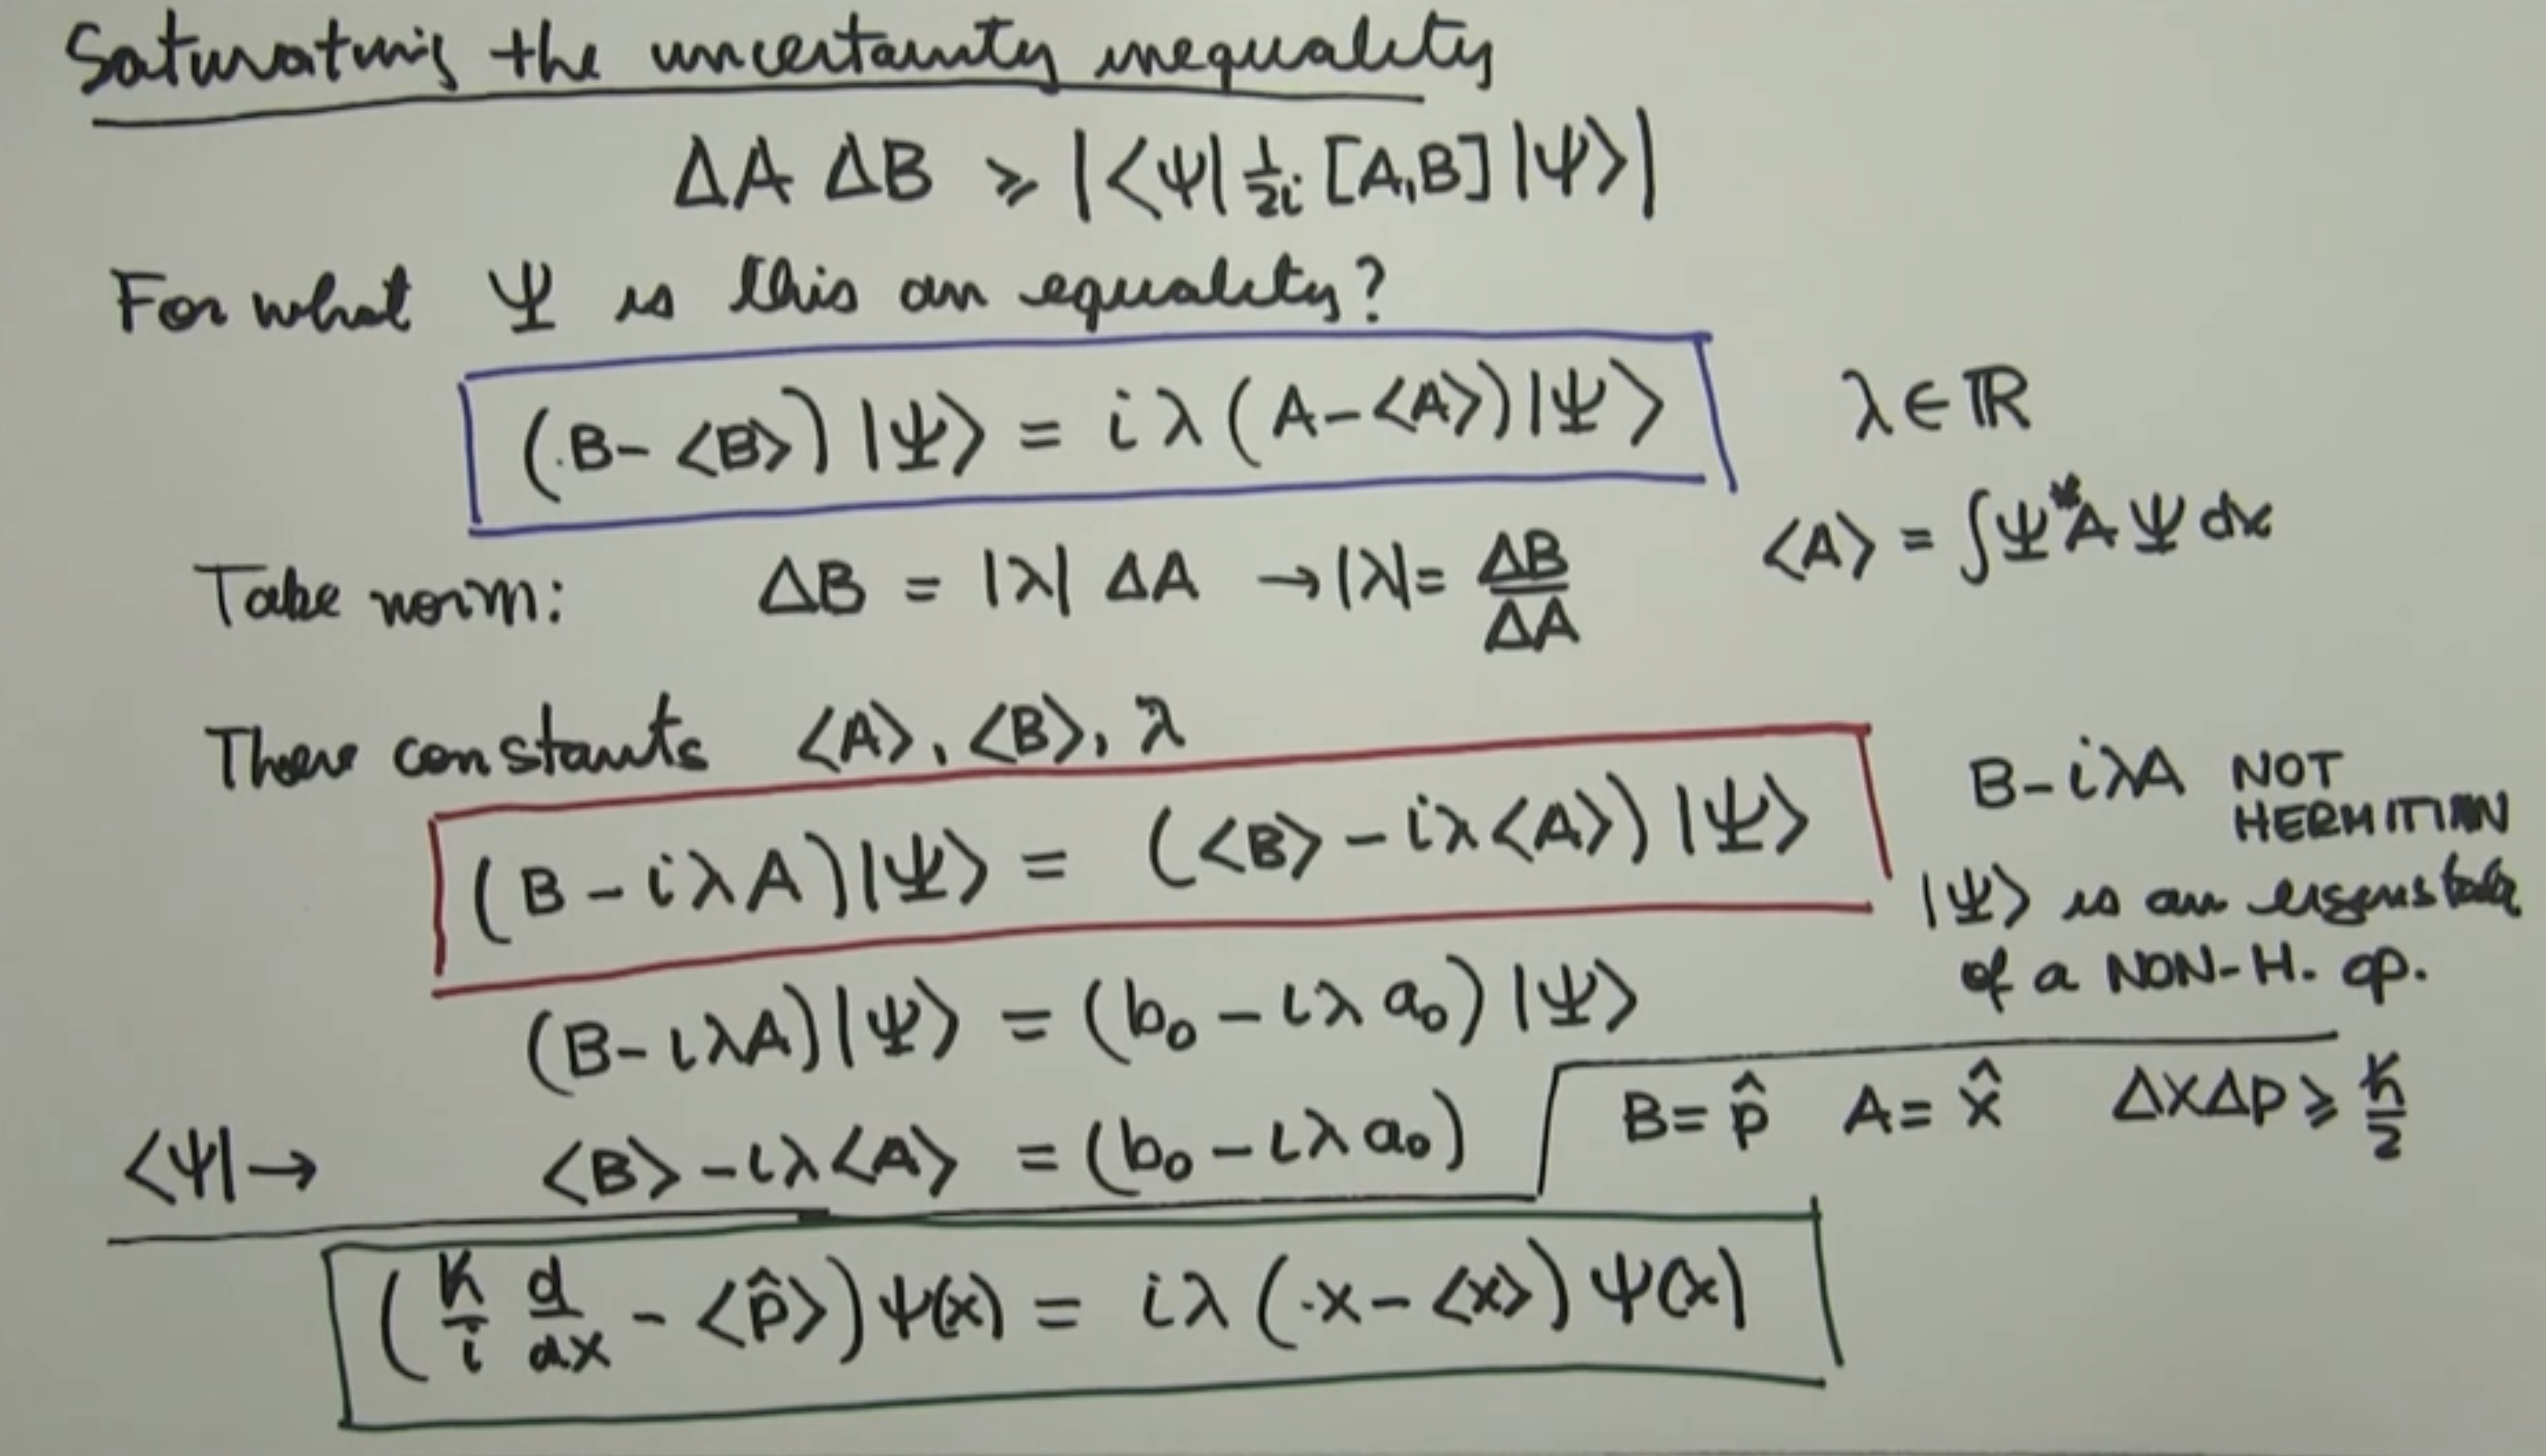 Saturating the uncertainty inequality
ΔA ΔB ≥ |⟨Ψ| 1/2i [A,B] |Ψ⟩|
For what Ψ is this an equality?
(B-⟨B⟩)|Ψ⟩ = iλ(A-⟨A⟩)|Ψ⟩ λ∈ℝ
⟨A⟩ = ∫Ψ*AΨdx
Take norm: ΔB = |λ| ΔA → |λ| = ΔB/ΔA
These constants ⟨A⟩, ⟨B⟩, λ
(B-iλA)|Ψ⟩ = (⟨B⟩-iλ⟨A⟩)|Ψ⟩
B-iλA NOT
HERMITIAN
|Ψ⟩ is an eigenstate
of a NON-H. op.
(B-iλA)|Ψ⟩ = (b₀-iλa₀)|Ψ⟩
⟨Ψ|→ ⟨B⟩-iλ⟨A⟩ = (b₀-iλa₀)
B= p̂ A= x̂ ΔxΔp ≥ ħ/2
(ħ/i d/dx - ⟨p̂⟩)ψ(x) = iλ(x-⟨x⟩)ψ(x)